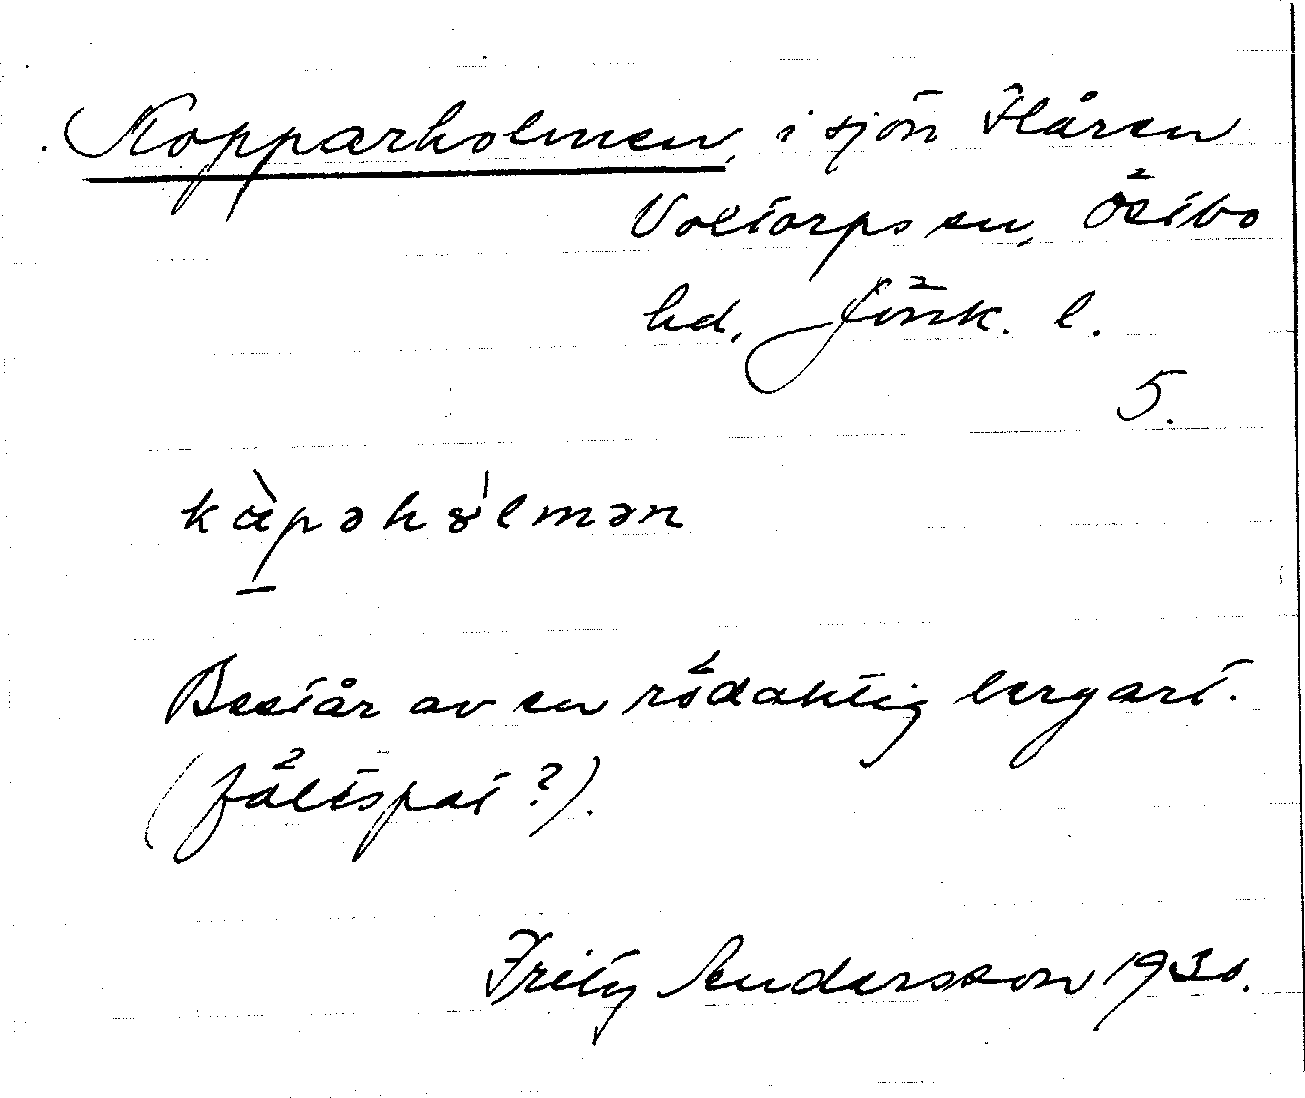 Kopparholmen, i sjön Flåren
Voxtorps sn, Östbo
hd, Jönk. l.
5.
kàpəhɷ̍lmən
Består av en rödaktig bergart.
(fältspat?).
Fritz Andersson 1930.